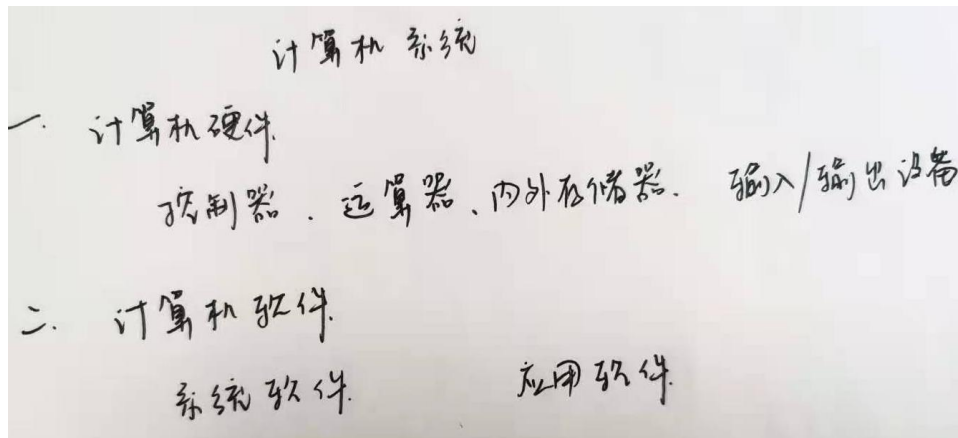 计算机系统
一. 计算机硬件.
控制器. 运算器、内外存储器. 输入/输出设备
二. 计算机软件.
系统软件. 应用软件.